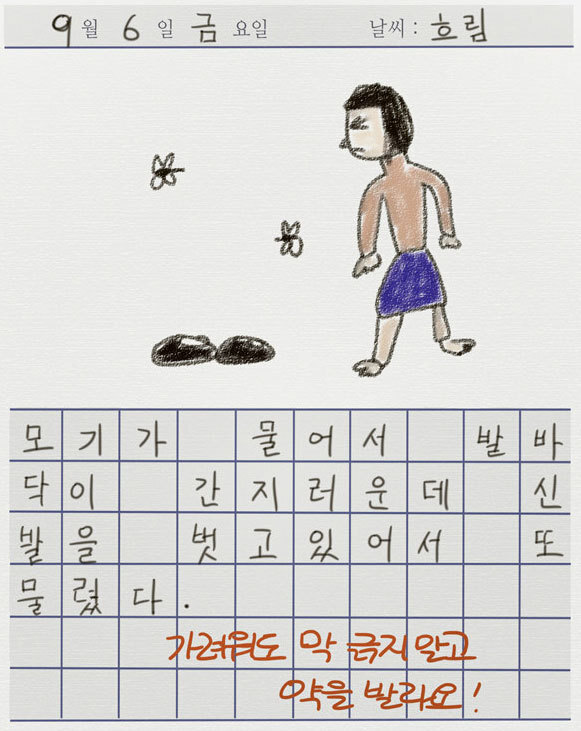 9월 6일 금요일 날씨 : 흐림
모기가 물어서 발바
닥이 간지러운데 신
발을 벗고있어서 또
물렸다.
가려워도 막 긁지말고
약을 발라요!